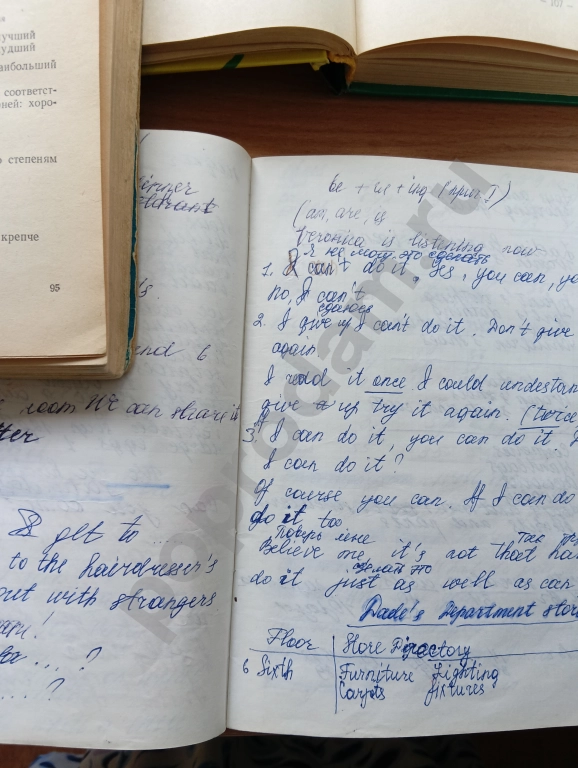 учший
удший
аибольший
соответст-
ней: хоро-
о степеням
крепче
95
– 101 –
end 6
room We can share it
tter
get to ...
to the hairdresser's
out with strangers
... ?
... ?
be + + ing (прич I)
(am, are, is
Veronica is listening now
я не могу это сделать
1. I can't do it, yes, you can, yo
no, I can't
сдаюсь
2. I give up I can't do it. Don't give
again
I read it once I could undestan
give up try it again. (twice
3. If I can do it, you can do it.
I can do it?
Of course you can. If I can do
do it too
Поверь мне так
Believe me, it's not that ha
сделать это
do it just as well as can
Dade's Department stor
Floor Store Directory
6 Sixth Furniture Lighting
Carpets fixtures
poprodam.ru